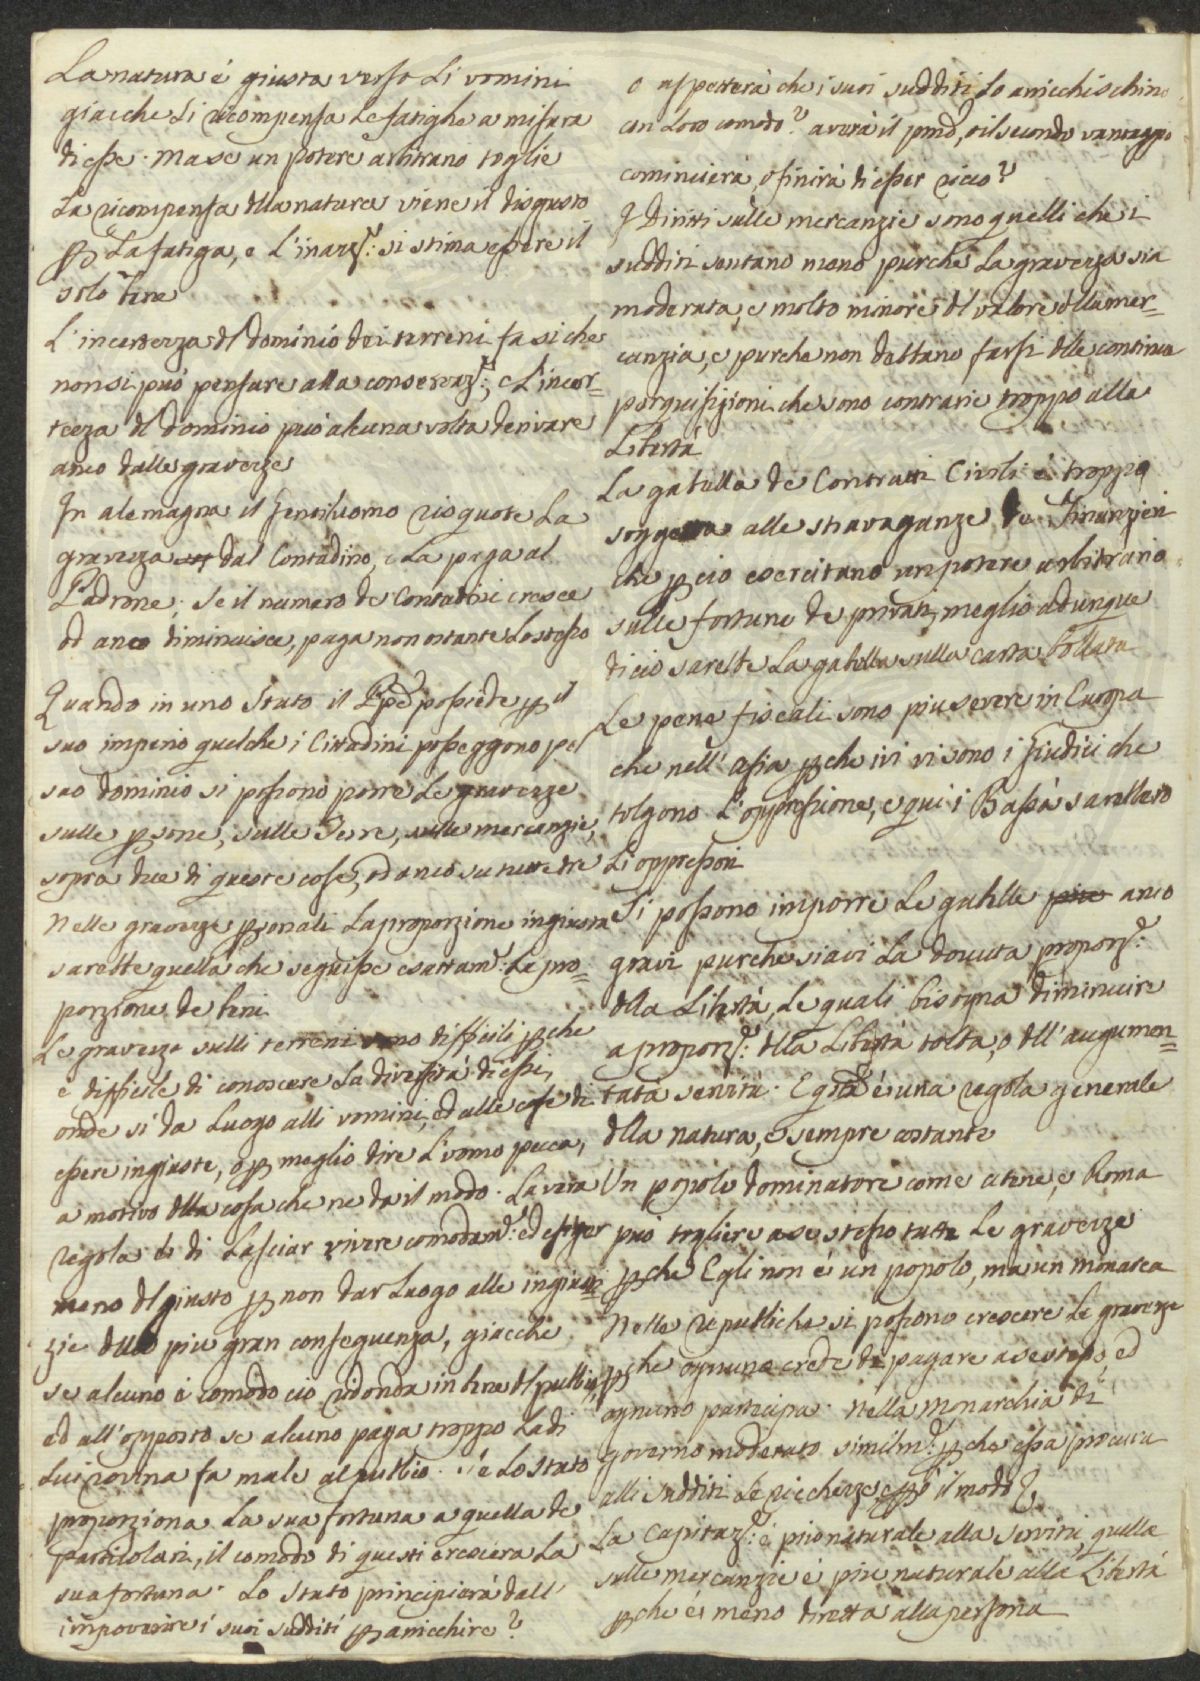 La natura é giusta verso Li vomini
giacche Li ricompensa Le fatighe a misura
di esse. Ma se un potere arbitrario toglie
La ricompensa dlla natura viene il disgusto
p La fatiga, e L'inaz.: si stima essere il
solo bene
L'incertezza dl dominio dei terreni fa si che
non si può pensare alla conservaz.: e L'incer=
tezza dl dominio può alcuna volta derivare
anco dalle gravezze
In alemagna il Gentiluomo risquote La
gravezza dal Contadino, e La paga al
Padrone. Se il numero de Contadini cresce
od anco diminuisce, paga non ostante Lo stesso
Quando in uno Stato il Ppe possiede p il
suo imperio quel che i Cittadini posseggono pel
suo dominio si possono porre Le gravezze
sulle psone, sulle Terre, sulle mercanzie,
sopra due di queste cose, od anco su tutte tre
Nelle gravezze psonali La proporzione ingiusta
sarebbe quella che seguisse esattam.: La pro=
porzione de beni
Le gravezze sulli terreni sono difficili pche
è difficile di conoscere La diversità di essi,
onde si da Luogo alli vomini, ed alle cose di
essere ingiuste, o p meglio dire L'vomo pecca,
a motivo dlla cosa che ne da il modo. La vera
regola è di Lasciar vivere comodam.: ed esiger
meno dl giusto p non dar Luogo alle ingiusti=
zie dlla più gran conseguenza, giacche
se alcuno è comodo cio ridonda in bene dl pubblico,
ed all'opposto se alcuno paga troppo La di
Lui rovina fa male al publico. Se Lo Stato
proporziona La sua fortuna a quella de
particolari, il comodo di questi crescera La
sua fortuna. Lo Stato principierà dall'
impoverire i suoi sudditi p arricchire?
o aspetterà che i suoi sudditi Lo arricchischino
con Loro comodo? averà il pmo, o il secondo vantaggio
comincierà, o finirà di esser ricco?
I Diritti sulle mercanzie sono quelli che i
sudditi sentano meno purchè La gravezza sia
moderata, e molto minore dl valore dlla mer=
canzia, e purche non debbano farsi dlle continue
perquisizioni che sono contrarie troppo alla
Libertà
La gabella de Contratti Civili è troppo
soggetta alle stravaganze de Finanzieri
che p cio esercitano un potere arbitrario
sulle fortune de privati, meglio adunque
di cio sarebbe La gabella sulla carta bollata
Le pene fiscali sono piu severe in Europa
che nell'Asia pche ivi vi sono i Giudici che
tolgono L'oppressione, e qui i Bassà sarebbero
Li oppressori
Si possono imporre Le gabelle anco
gravi purche siavi La dovuta proporz.:
dlla Libertà, Le quali bisogna diminuire
a proporz.: dlla Libertà tolta, o dll'augumen=
tata servitù. E qsta è una regola generale
dlla natura, e sempre costante
Un popolo dominatore come Atene, e Roma
può togliere a se stesso tutte Le gravezze
pche Egli non è un popolo, ma un monarca
Nelle republiche si possono crescere Le gravezze
pche ognuno crede di pagare a se stesso, ed
ognuno partecipa. Nella Monarchia di
governo moderato similm.: pche essa procura
alli sudditi Le ricchezze, e p il modo
La Capitaz.: è più naturale alla servitù, quella
sulle mercanzie è più naturale alla Libertà
pche è meno diretta alla persona